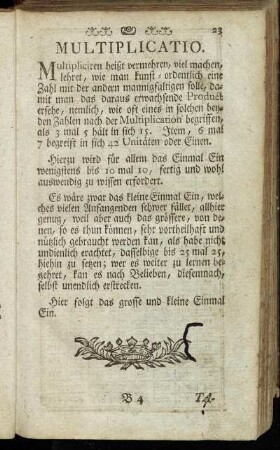 23
MULTIPLICATIO.
Multipliciren heißt vermehren, viel machen,
lehret, wie man kunst-ordentlich eine
Zahl mit der andern mannigfältigen solle, da-
mit man das daraus erwachsende Product
ersehe, nemlich, wie oft eines in solchen bey-
den Zahlen nach der Multiplication begriffen,
als 3 mal 5 hält in sich 15. Item, 6 mal
7 begreift in sich 42 Unitäten oder Einen.
Hierzu wird für allem das Einmal Ein
wenigstens bis 10 mal 10, fertig und wohl
auswendig zu wissen erfordert.
Es wäre zwar das kleine Einmal Ein, wel-
ches vielen Anfangenden schwer fället, allhier
genug, weil aber auch das grössere, von de-
nen, so es thun können, sehr vortheilhaft und
nützlich gebraucht werden kan, als habe nicht
undienlich erachtet, dasselbige bis 25 mal 25,
hiehin zu setzen; wer es weiter zu lernen be-
gehret, kan es nach Belieben, diesemnach,
selbst unendlich erstrecken.
Hier folgt das grosse und kleine Einmal
Ein.
B 4 Taf-